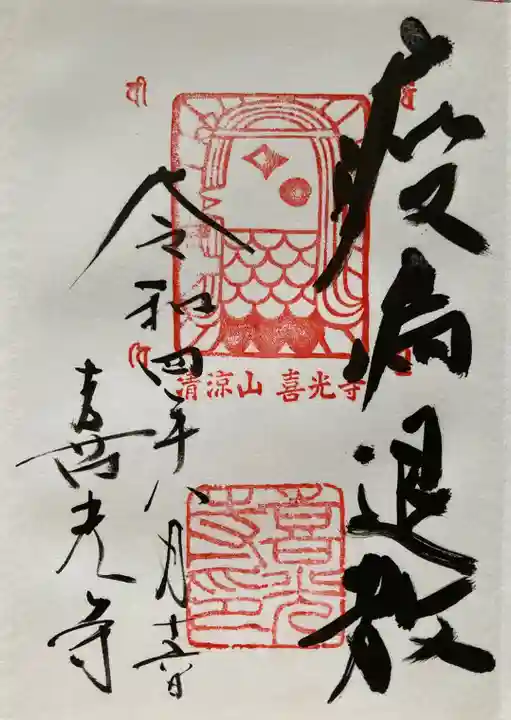 疫病退散
清涼山 喜光寺
喜光寺印
令和四年八月
喜光寺